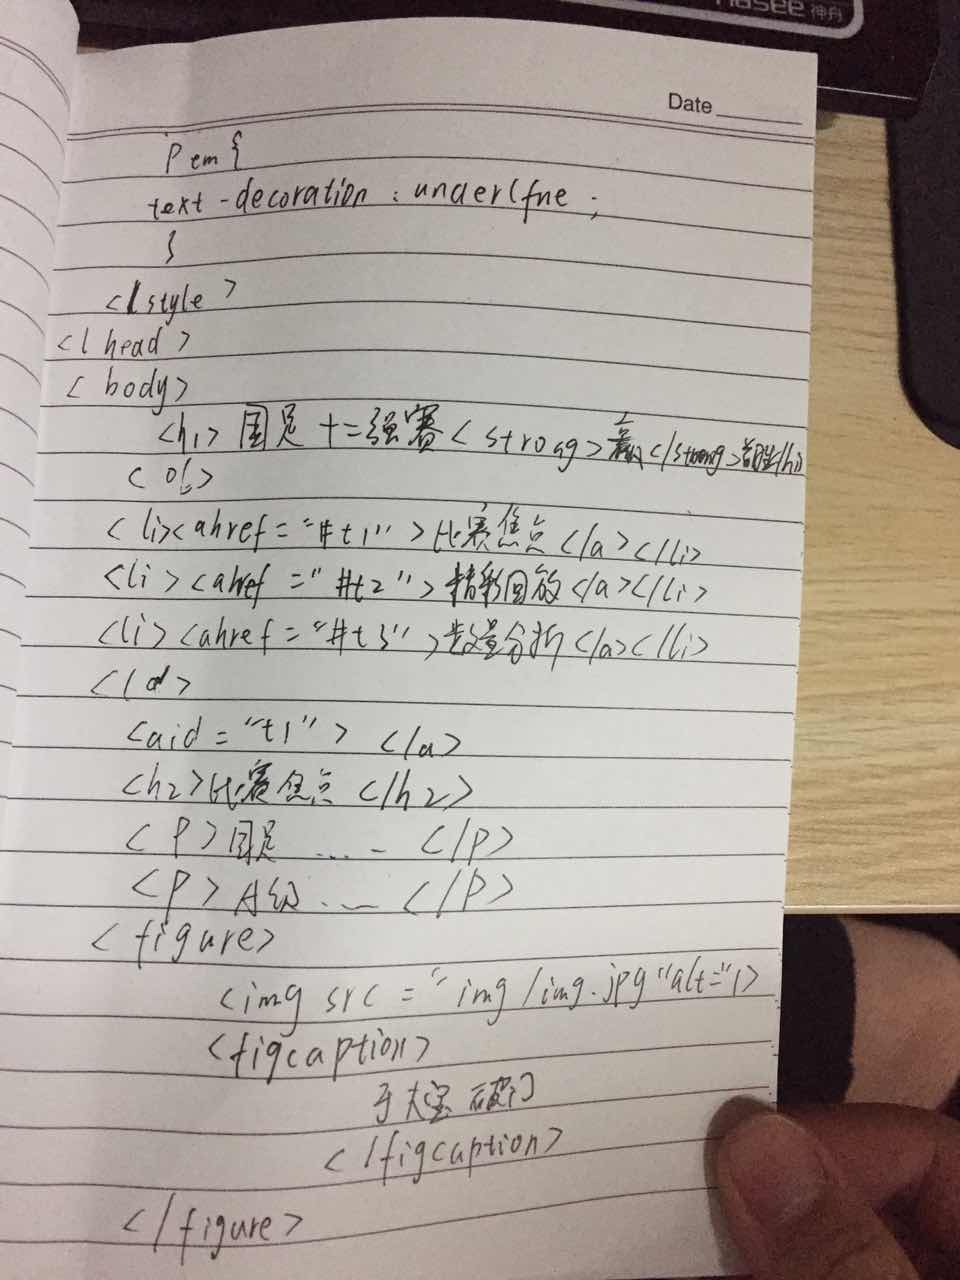 Hasee 神舟
Date
p em {
text-decoration : underline ;
}
</style>
</head>
<body>
<h1> 国足十二强赛<strong>赢</strong>首胜</h1>
<ol>
<li><ahref="#t1">比赛焦点</a></li>
<li><ahref="#t2">精彩回放</a></li>
<li><ahref="#t3">数量分析</a></li>
</ol>
<aid="t1"> </a>
<h2>比赛焦点</h2>
<P>国足 ..... </P>
<P>A组 ..... </P>
<figure>
<img src="img/img.jpg"alt="/>
<figcaption>
于大宝破门
</figcaption>
</figure>